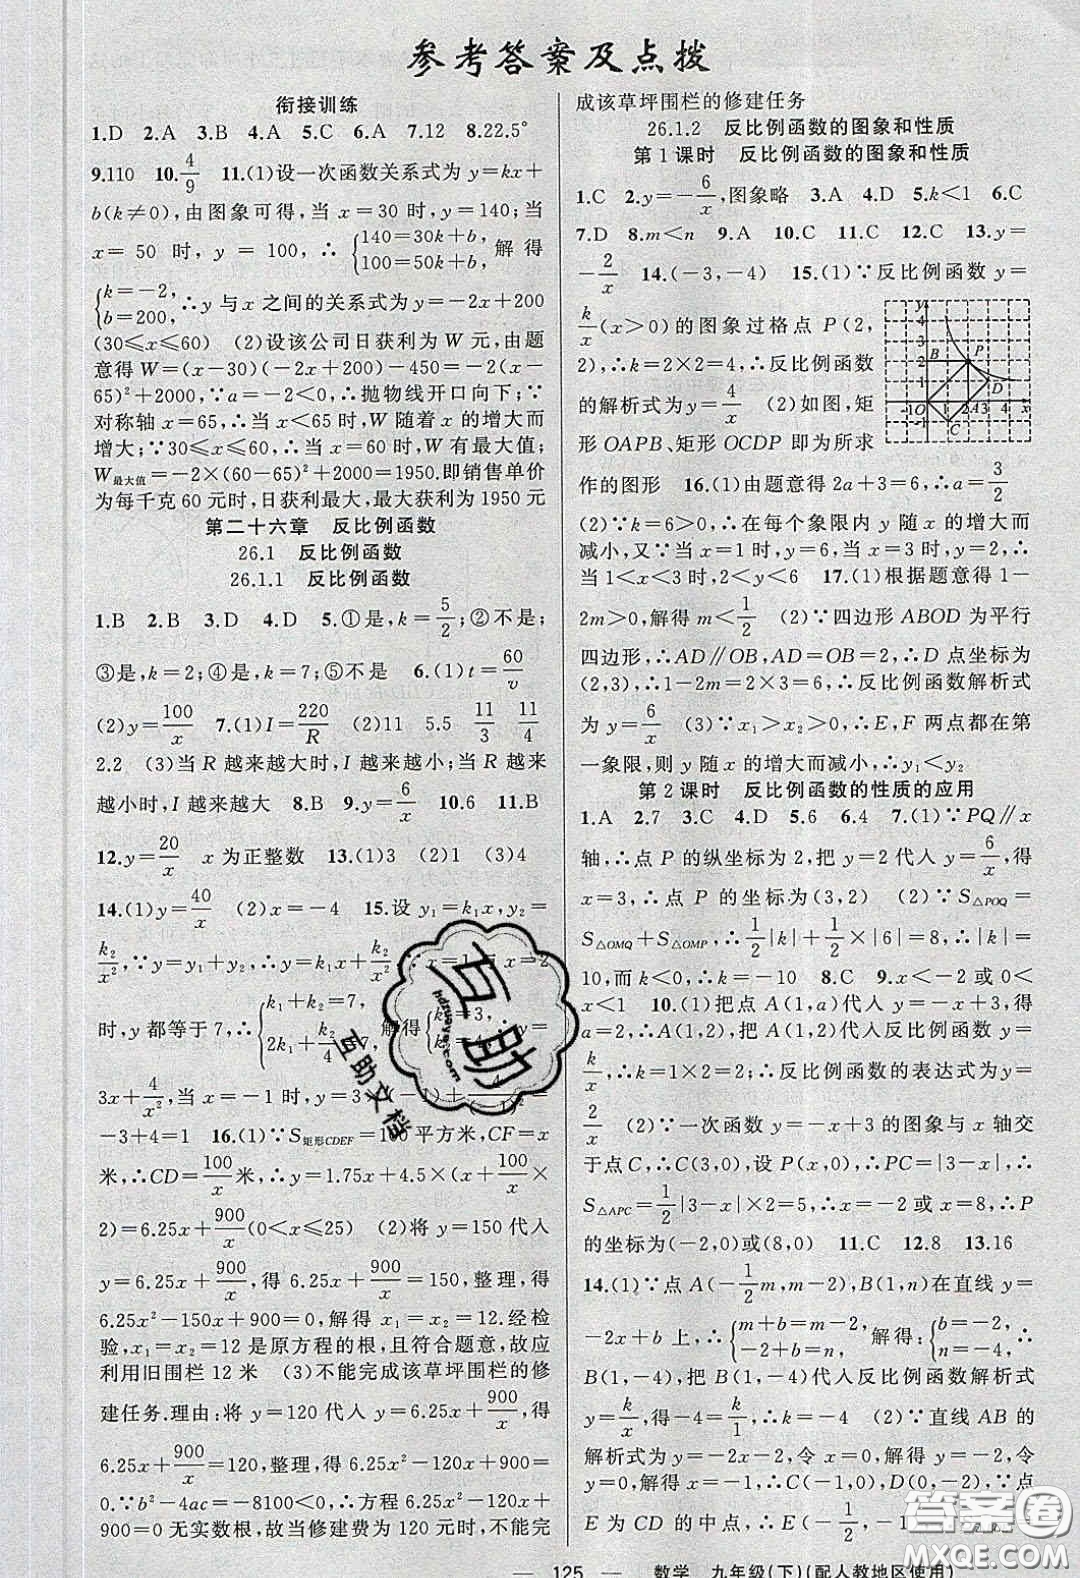 参考答案及点拨
衔接训练
1.D 2.A 3.B 4.A 5.C 6.A 7.12 8.22.5°
9.110 10.4/9 11.(1)设一次函数关系式为 y=kx+
b(k≠0),由图象可得,当 x=30 时,y=140;当
x=50 时,y=100,∴{140=30k+b, 100=50k+b,解得
{k=-2, b=200,∴y 与 x 之间的关系式为 y=-2x+200
(30≤x≤60) (2)设该公司日获利为 W 元,由题
意得 W=(x-30)(-2x+200)-450=-2(x-
65)²+2000,∵a=-2<0,∴抛物线开口向下;∵
对称轴 x=65,∴当 x<65 时,W 随着 x 的增大而
增大;∵30≤x≤60,∴当 x=60 时,W 有最大值;
W最大值=-2×(60-65)²+2000=1950.即销售单价
为每千克 60 元时,日获利最大,最大获利为 1950 元
第二十六章 反比例函数
26.1 反比例函数
26.1.1 反比例函数
1.B 2.B 3.D 4.D 5.①是,k=5/2;②不是;
③是,k=2;④是,k=7;⑤不是 6.(1)t=60/v
(2)y=100/x 7.(1)I=220/R (2)11 5.5 11/3 11/4
2.2 (3)当 R 越来越大时,I 越来越小;当 R 越来
越小时,I 越来越大 8.B 9.y=6/x 10.6 11.B
12.y=20/x x 为正整数 13.(1)3 (2)1 (3)4
14.(1)y=40/x (2)x=-4 15.设 y₁=k₁x,y₂=
k₂/x²,∵y=y₁+y₂,∴y=k₁x+k₂/x² x=1 x=2
时,y 都等于 7,∴{k₁+k₂=7, 2k₁+k₂/4 解得{ =3, =4, y=
3x+4/x² (2)当 x=-1 时,y=3
-3+4=1 16.(1)∵S矩形CDEF=100 平方米,CF=x
米,∴CD=100/x 米,∴y=1.75x+4.5×(x+100/x×
2)=6.25x+900/x(0<x≤25) (2)将 y=150 代入
y=6.25x+900/x,得 6.25x+900/x=150,整理,得
6.25x²-150x+900=0,解得 x₁=x₂=12.经检
验,x₁=x₂=12 是原方程的根,且符合题意,故应
利用旧围栏 12 米 (3)不能完成该草坪围栏的修
建任务.理由:将 y=120 代入 y=6.25x+900/x,得
6.25x+900/x=120,整理,得 6.25x²-120x+900=
0.∵b²-4ac=-8100<0,∴方程 6.25x²-120x+
900=0 无实数根,故当修建费为 120 元时,不能完
成该草坪围栏的修建任务
26.1.2 反比例函数的图象和性质
第 1 课时 反比例函数的图象和性质
1.C 2.y=-6/x,图象略 3.A 4.D 5.k<1 6.C
7.D 8.m<n 9.A 10.C 11.C 12.C 13.y=
-2/x 14.(-3,-4) 15.(1)∵反比例函数 y=
k/x(x>0)的图象过格点 P(2,
2),∴k=2×2=4,∴反比例函数
的解析式为 y=4/x (2)如图,矩
形 OAPB,矩形 OCDP 即为所求
作的图形 16.(1)由题意得 2a+3=6,∴a=3/2
(2)∵k=6>0,∴在每个象限内 y 随 x 的增大而
减小,又∵当 x=1 时,y=6;当 x=3 时,y=2,∴
当 1<x<3 时,2<y<6 17.(1)根据题意得 1-
2m>0,解得 m<1/2 (2)∵四边形 ABOD 为平行
四边形,∴AD∥OB,AD=OB=2,∴D 点坐标为
(2,3),∴1-2m=2×3=6,∴反比例函数解析式
为 y=6/x (3)∵x₁>x₂>0,∴E,F 两点都在第
一象限,则 y 随 x 的增大而减小,∴y₁<y₂
第 2 课时 反比例函数的性质的应用
1.A 2.7 3.C 4.D 5.6 6.4 7.(1)∵PQ∥x
轴,∴点 P 的纵坐标为 2,把 y=2 代入 y=6/x,得
x=3,∴点 P 的坐标为(3,2) (2)∵S△POQ=
S△OMQ+S△OMP,∴1/2|k|+1/2×|6|=8,∴|k|=
10,而 k<0,∴k=-10 8.C 9.x<-2 或 0<
x<1 10.(1)把点 A(1,a)代入 y=-x+3,得
a=2,∴A(1,2),把 A(1,2)代入反比例函数 y=
k/x,∴k=1×2=2;∴反比例函数的表达式为 y=
2/x (2)∵一次函数 y=-x+3 的图象与 x 轴交
于点 C,∴C(3,0),设 P(x,0),∴PC=|3-x|,∴
S△APC=1/2|3-x|×2=5,∴x=-2 或 x=8,∴P
的坐标为(-2,0)或(8,0) 11.C 12.8 13.16
14.(1)∵点 A(-1/2m,m-2),B(1,n)在直线 y=
-2x+b 上,∴{m+b=m-2, -2+b=n, 解得:{b=-2, n=-4,
∴B(1,-4),把 B(1,-4)代入反比例函数解析式
y=k/x,得-4=k/1,∴k=-4 (2)∵直线 AB 的
解析式为 y=-2x-2,令 x=0,则 y=-2,令
y=0,则 x=-1,∴C(-1,0),D(0,-2),∵点
E 为 CD 的中点,∴E(-1/2,-1
y
4
3
2
1
B
P
D
-1 O 1 2 A 3 4 x
-1
C
互助
hdzuoye.com
互助文档
答案圈
MXQE.COM
— 125 — 数学 九年级(下)(配人教地区使用)